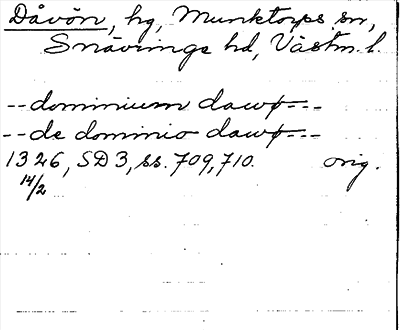 Dåvön, hg, Munktorps sn,
Snävringe hd, Västm. l.
-- dominium dawø---
-- de dominio dawø---
1326, SD 3, ss. 709, 710. orig.
14/2